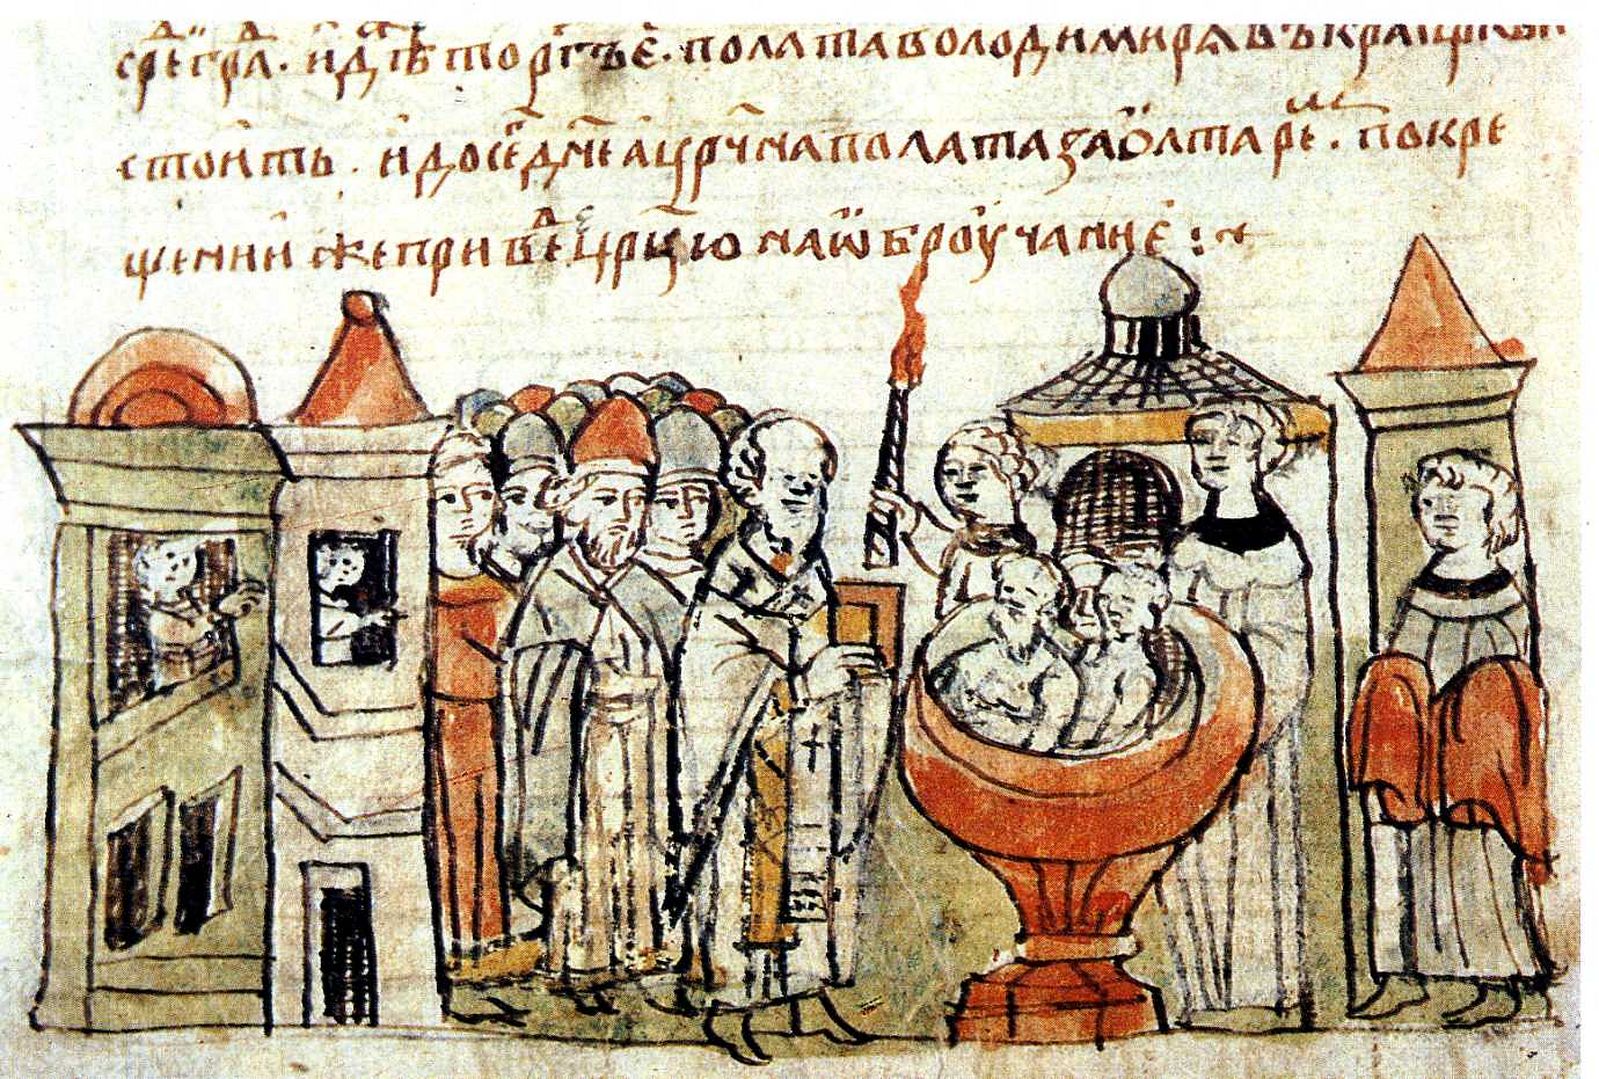 среⷣ граⷣ. идѣⷤ торгъе. полата володимиря въ краи цркви
стоить. и до сег дн҃е а цр҃чна полата за ѡлтареⷨ. по кре
щении же привеⷣ цр҃цю на ѡброучание :~